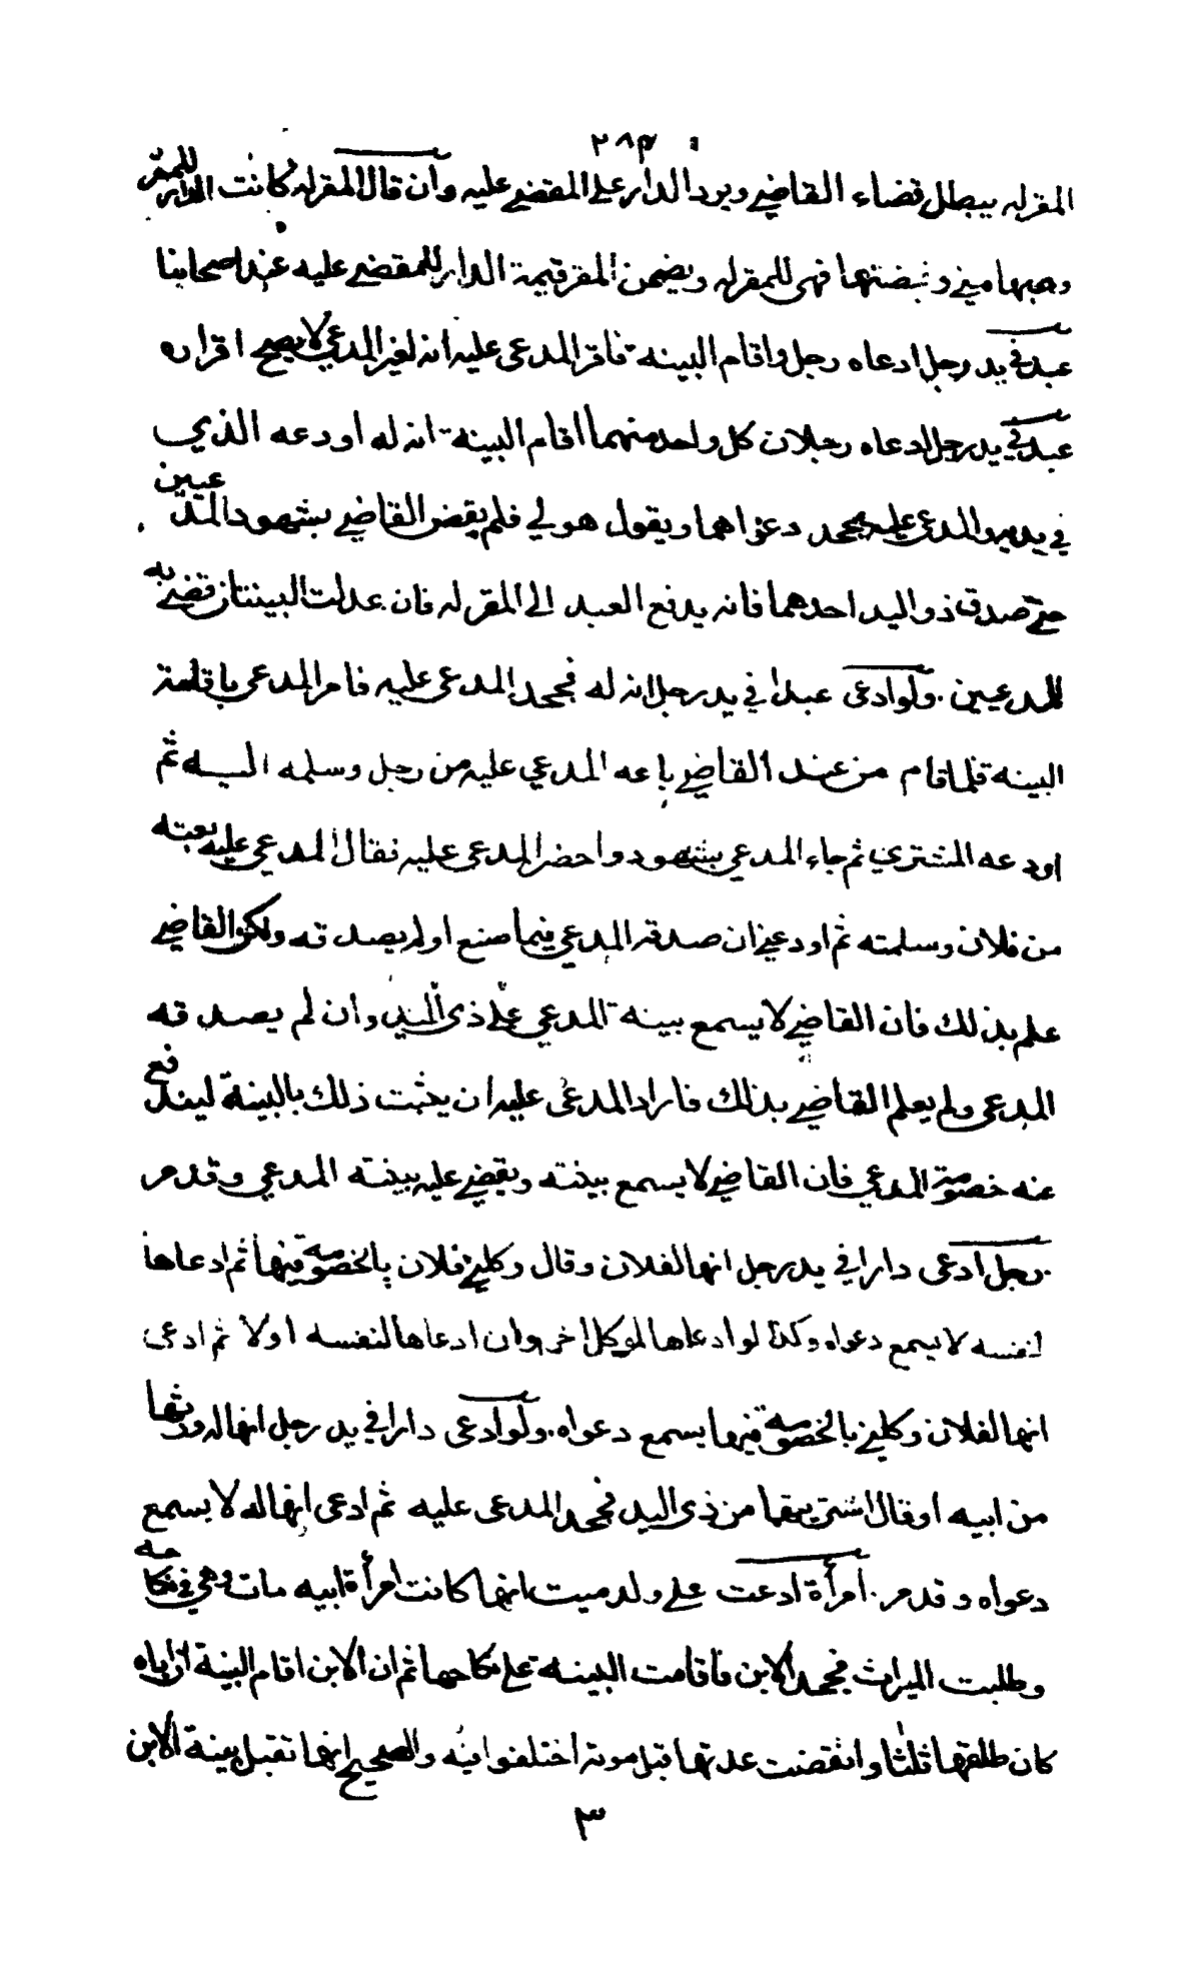 ٢٨٣
المقرله يبطل قضاء القاضي ويرد الدار على المقضي عليه وان قال المقرله كانت الدار للمقر
وهبها مني وقبضتها فهى للمقرله ويضمن المقر قيمة الدار للمقضي عليه عند اصحابنا
عبد في يد رجل ادعاه رجل واقام البينة فاقر المدعى عليه انه لغير المدعي لا يصح اقراره
عبد في يد رجل ادعاه رجلان كل واحد منهما اقام البينة انه له اودعه الذي
في يديه والمدعى عليه يجحد دعواهما ويقول هو لي فلم يقض القاضي بشهود المدعيين
حتى صدق ذو اليد احدهما فانه يدفع العبد الى المقرله فان عدلت البينتان قضي به
للمدعيين ولو ادعى عبدا في يد رجل انه له فجحد المدعى عليه فامر المدعي باقامة
البينه فلما قام من عند القاضي باعه المدعي عليه من رجل وسلمه اليه ثم
اودعه المشتري ثم جاء المدعي بشهود واحضر المدعى عليه فقال المدعي عليه بعته
من فلان وسلمته ثم اودعني ان صدقه المدعي فيما صنع اولم يصدقه ولكن القاضي
علم بذلك فان القاضي لا يسمع بينة المدعي على ذى اليد وان لم يصدقه
المدعى ولم يعلم القاضي بذلك فاراد المدعى عليه ان يثبت ذلك بالبينة ليندفع
عنه خصومة المدعي فان القاضي لا يسمع بينته ويقضي عليه ببينته المدعي وقد مر
رجل ادعى دارا في يد رجل انها لفلان وقال وكلني فلان بالخصومة فيها ثم ادعاها
لنفسه لا يسمع دعواه وكذا لو ادعاها لموكل اخر وان ادعاها لنفسه اولا ثم ادعى
انها لفلان وكلني بالخصومة فيها يسمع دعواه ولو ادعى دارا في يد رجل انها له ورثها
من ابيه اوقال اشتريتها من ذى اليد فجحد المدعى عليه ثم ادعى انها له لا يسمع
دعواه وقد مر امرأة ادعت على ولد ميت انها كانت امرأة ابيه مات وهي في نكاحه
وطلبت الميراث فجحد الابن فاقامت البينة على نكاحها ثم ان الابن اقام البينة ان اباه
كان طلقها ثلثا وانقضت عدتها قبل موته اختلفوا فيه والصحيح انها تقبل بينة الابن
٣